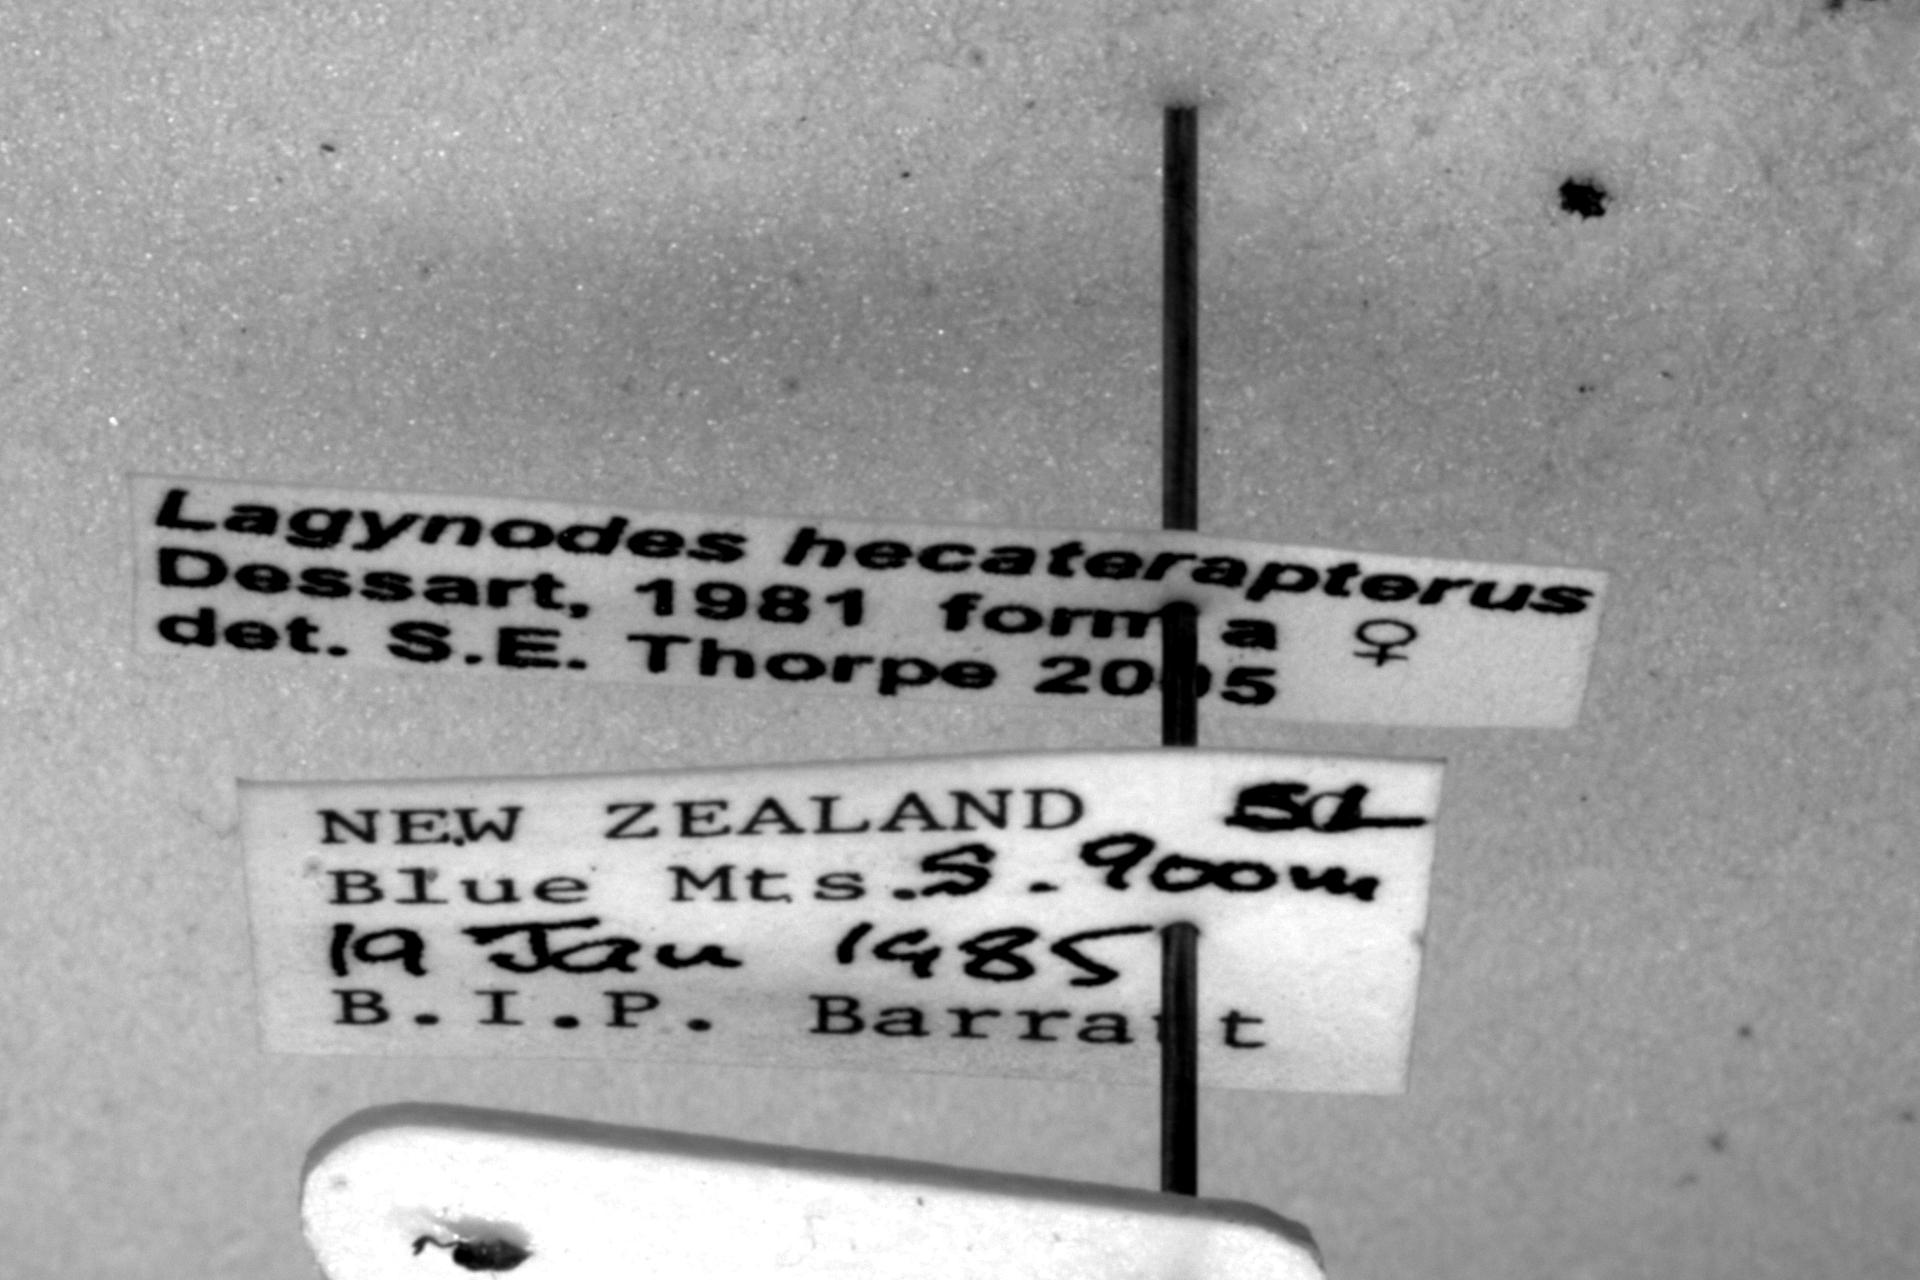 Lagynodes hecaterapterus
Dessart, 1981 form a ♀
det. S.E. Thorpe 2005
NEW ZEALAND SL
Blue Mts.S. 900m
19 Jan 1985
B.I.P. Barratt